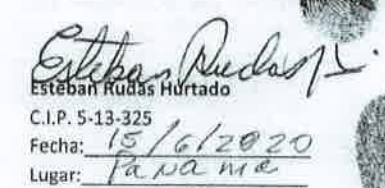 Esteban Rudas H.
Esteban Rudas Hurtado
C.I.P. 5-13-325
Fecha: 15/6/2020
Lugar: Panama